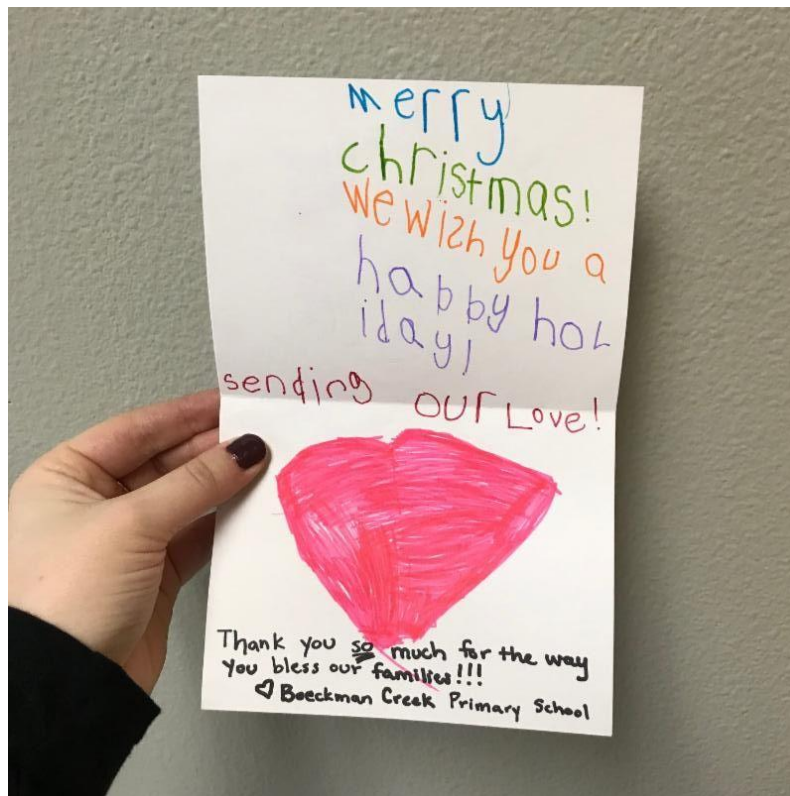 merry
christmas!
we wish you a
habby hol
iday!
sending our Love!
Thank you so much for the way
you bless our families!!!
♡ Boeckman Creek Primary School